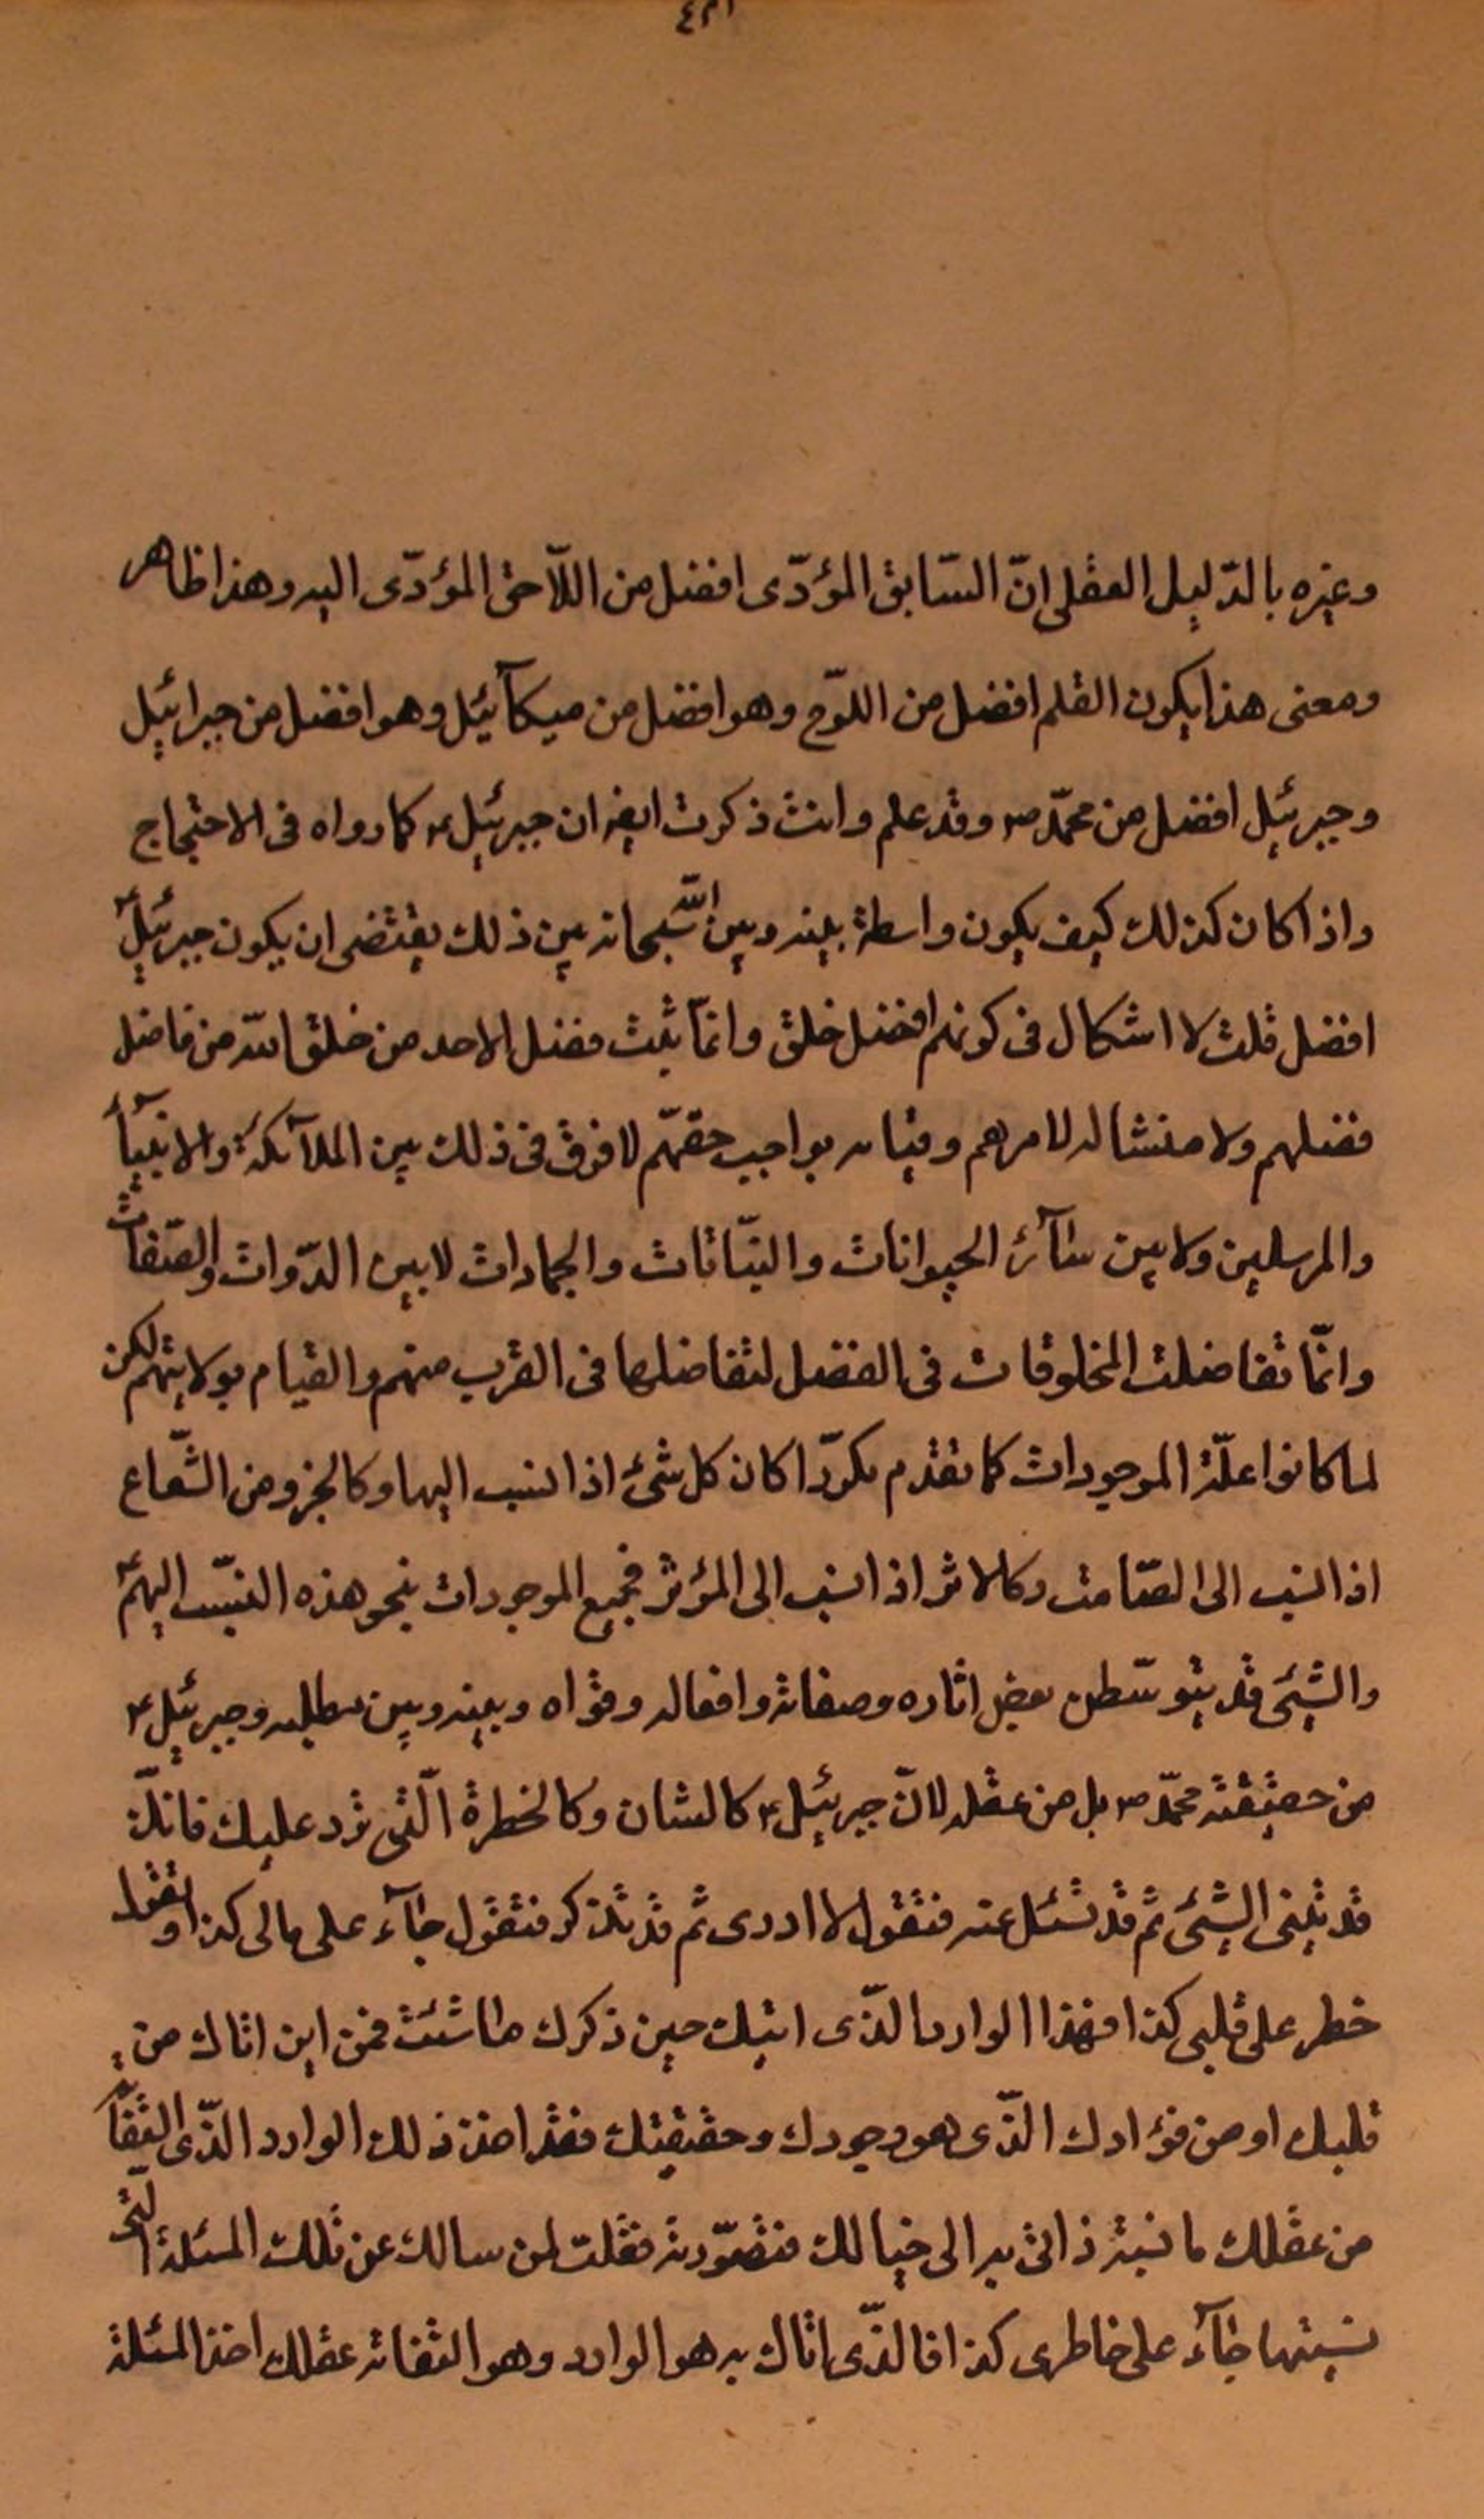 وغيره بالدّليل العقلى انّ السّابق المؤدّى افضل من اللّاحق المؤدّى اليه وهذا ظاهر
ومعنى هذا يكون القلم افضل من اللوّح وهو افضل من ميكآئيل وهو افضل من جبرائيل
وجبرئيل افضل من محمّد ص وقد علم وانت ذكرت ايضا ان جبرئيل ع كما رواه فى الاحتجاج
واذا كان كذلك كيف يكون واسطة بينه وبين الله سبحانه بين ذلك يقتضى ان يكون جبرئيل ع
افضل قلت لا اشكال فى كونهم افضل خلق وانمّا يثبت فضل الاحد من خلق الله من فاضل
فضلهم ولا منشا له لامرهم وقيامه بواجب حقهّم لا فرق فى ذلك بين الملآئكة والانبيآء
والمرسلين ولا بين سآئر الحيوانات والنبّاتات والجمادات لا بين الذّوات والصّفات
وانمّا تفاضلت المخلوقات فى الفضل لتفاضلها فى القرب منهم والقيام بولايتهم لكن
لما كانوا علّة الموجودات كما تقدم مكرّرا كان كل شئ اذا نسب اليها وكالجزو من الشّعاع
اذا نسب الى الصّامت وكالاثر اذا نسب الى المؤثر فجميع الموجودات بنحو هذه النسّب اليهم ع
والشيئ قد يتوسّط بعض اثاره وصفاته وافعاله وقواه وبينه وبين مطلبه وجبرئيل ع
من حقيقة محمّد ص بل من عقله لانّ جبرئيل ع كالشان وكالخطرة الّتى ترد عليك فانّك
قد تنسى الشيئ ثم قد تسئل عنه فتقول لا ادرى ثم قد تذكر فتقول جآء على بالى كذا او تقول
خطر على قلبى كذا فهذا الوارد الذّى اتيك حين ذكرك ما شئت فمن اين اتاك من
قلبك او من فؤادك الذّى هو وجودك وحقيقتك فقد اخذ ذلك الوارد الذّى التفاته
من عقلك ما نسيته ذاتى به الى خيالك فتصوّرته فقلت لمن سالك عن تلك المسئلة التى
نسيتها جآء على خاطرى كذا فالذّى اتاك به هو الوارد وهو التفاته عقلك اخذ المسئلة